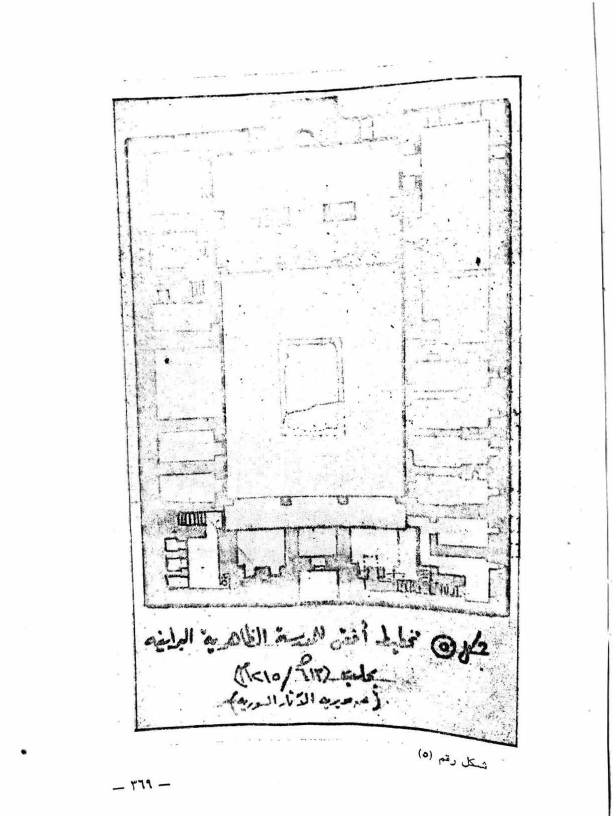 شكل ⑤ تخطيط أفقي للمدرسة الظاهرية البرانيه
بحلب (٦١٣ه / ١٢١٥م)
(عن مديريه الآثار السوريه)
شكل رقم (٥)
— ٣٦٩ —